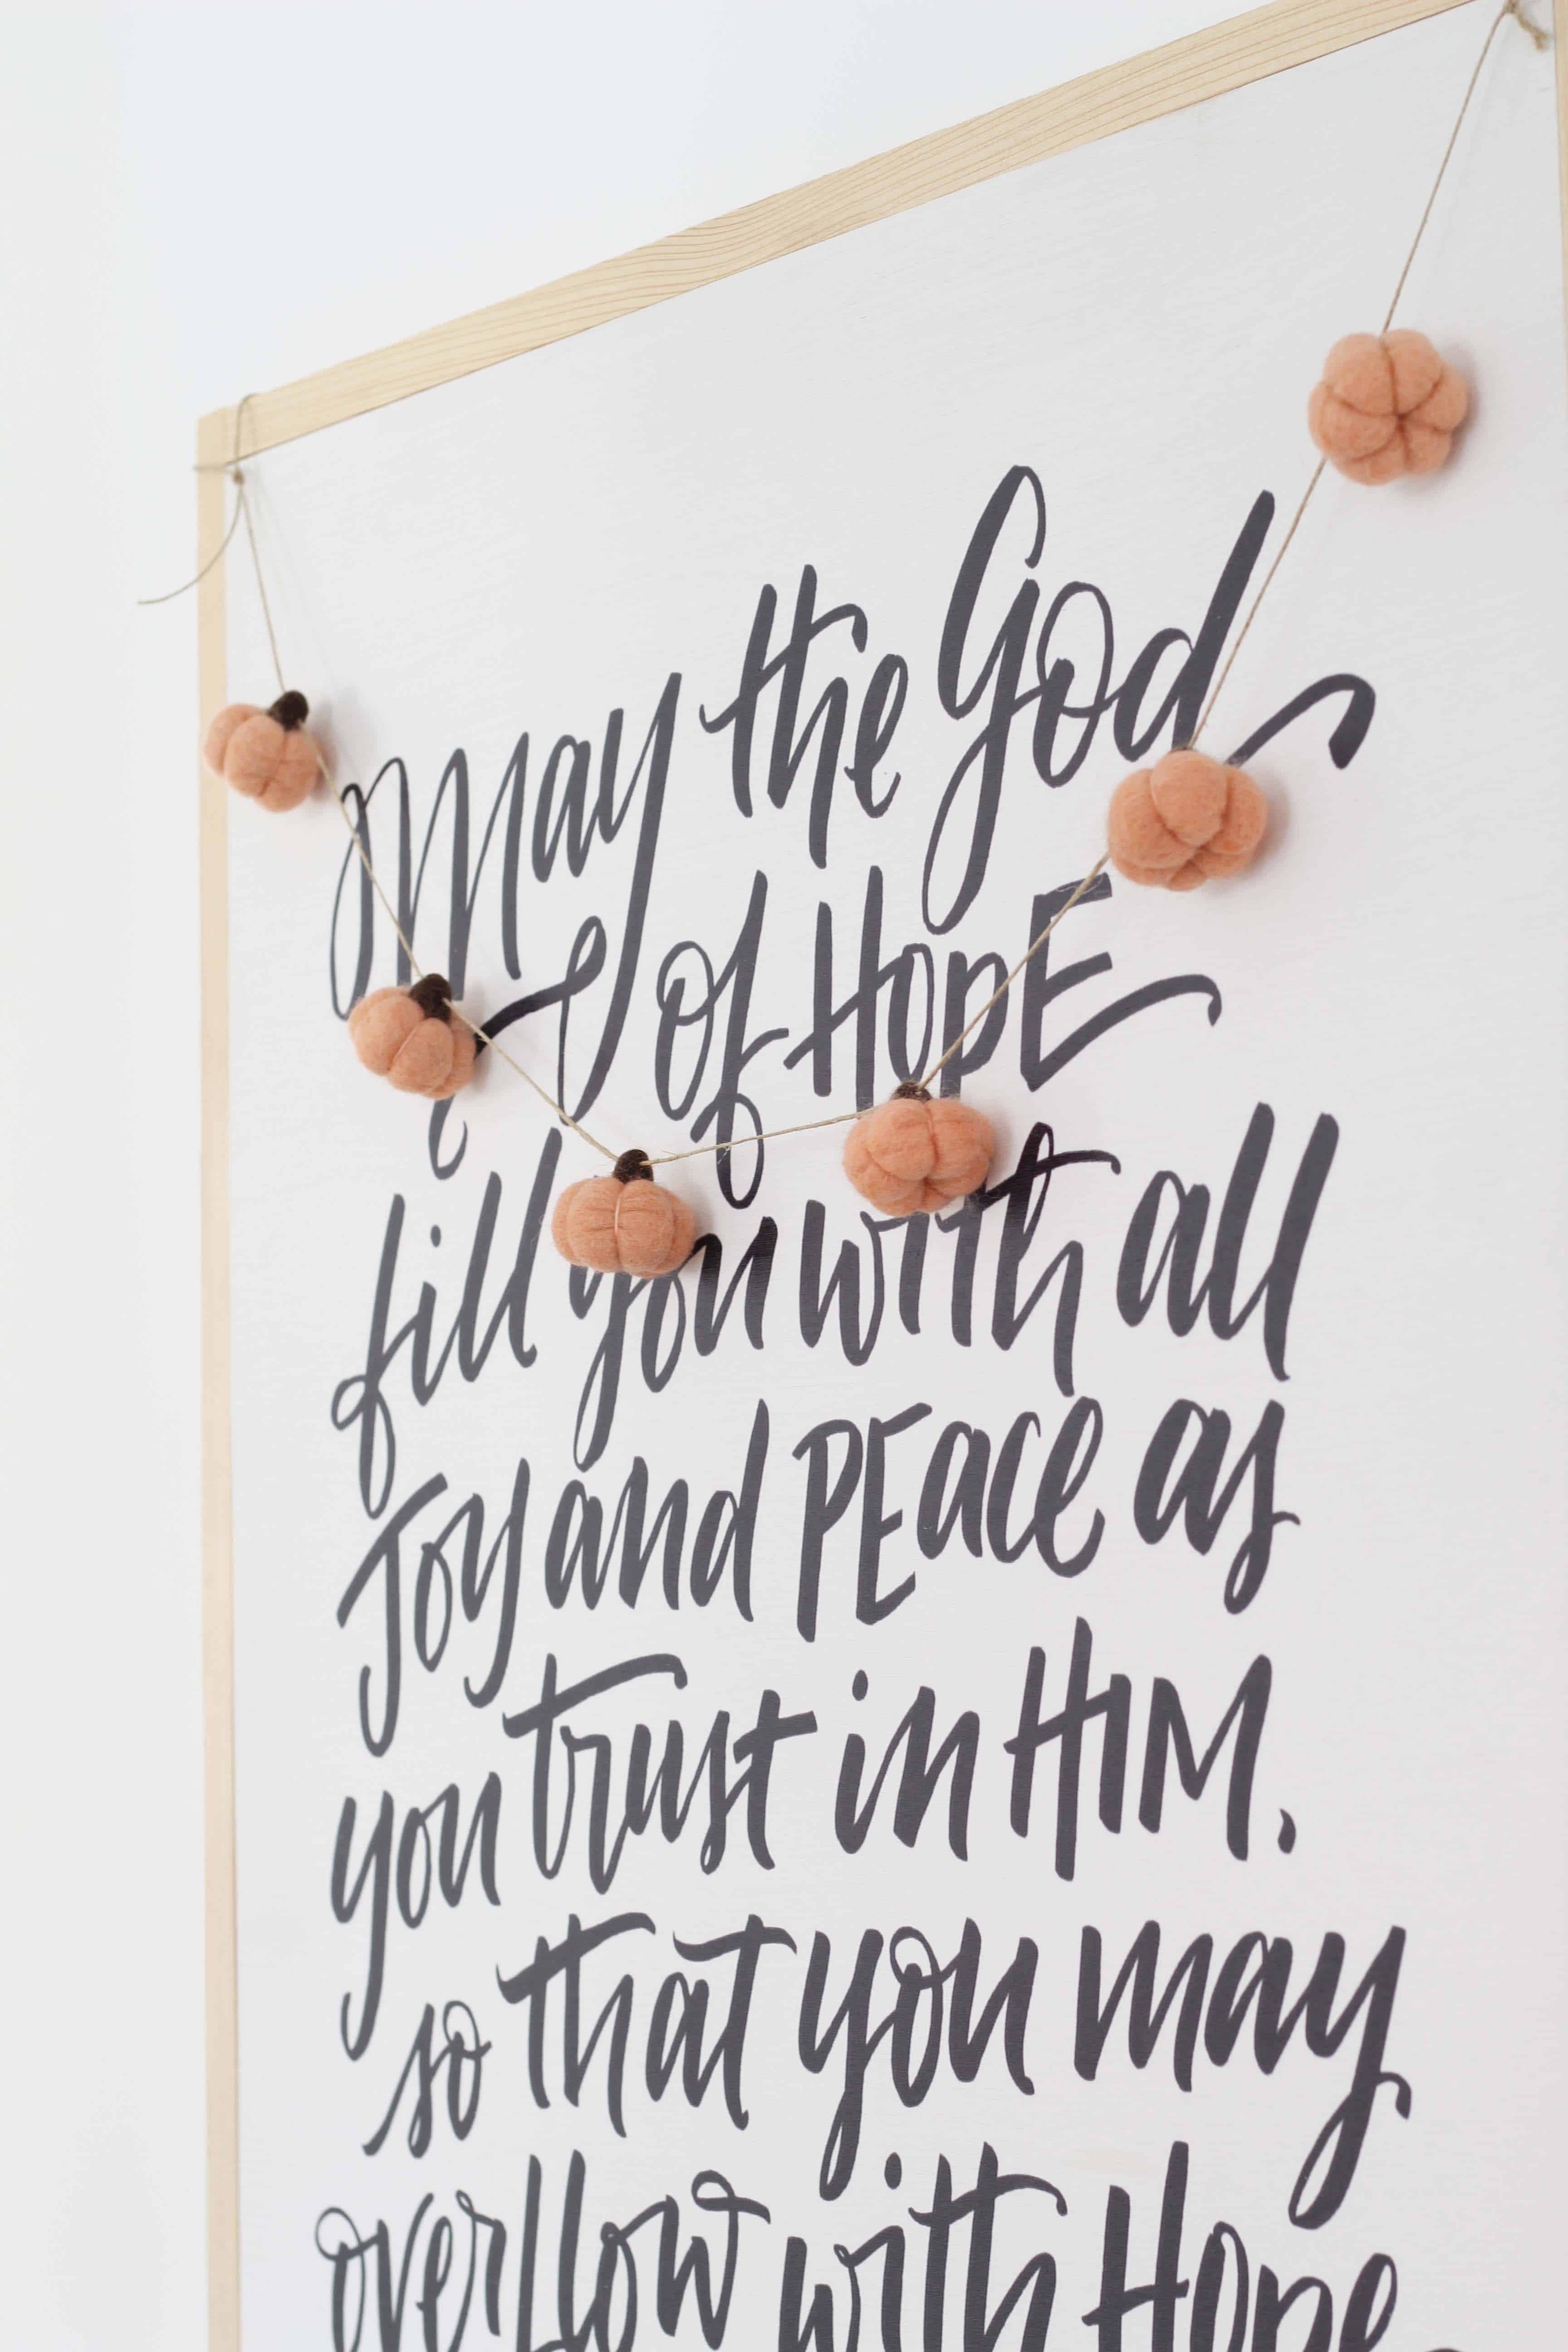 May the God
of HopE
fill you with all
Joy and PEace as
you trust in HIM.
so that you may
overflow with Hope